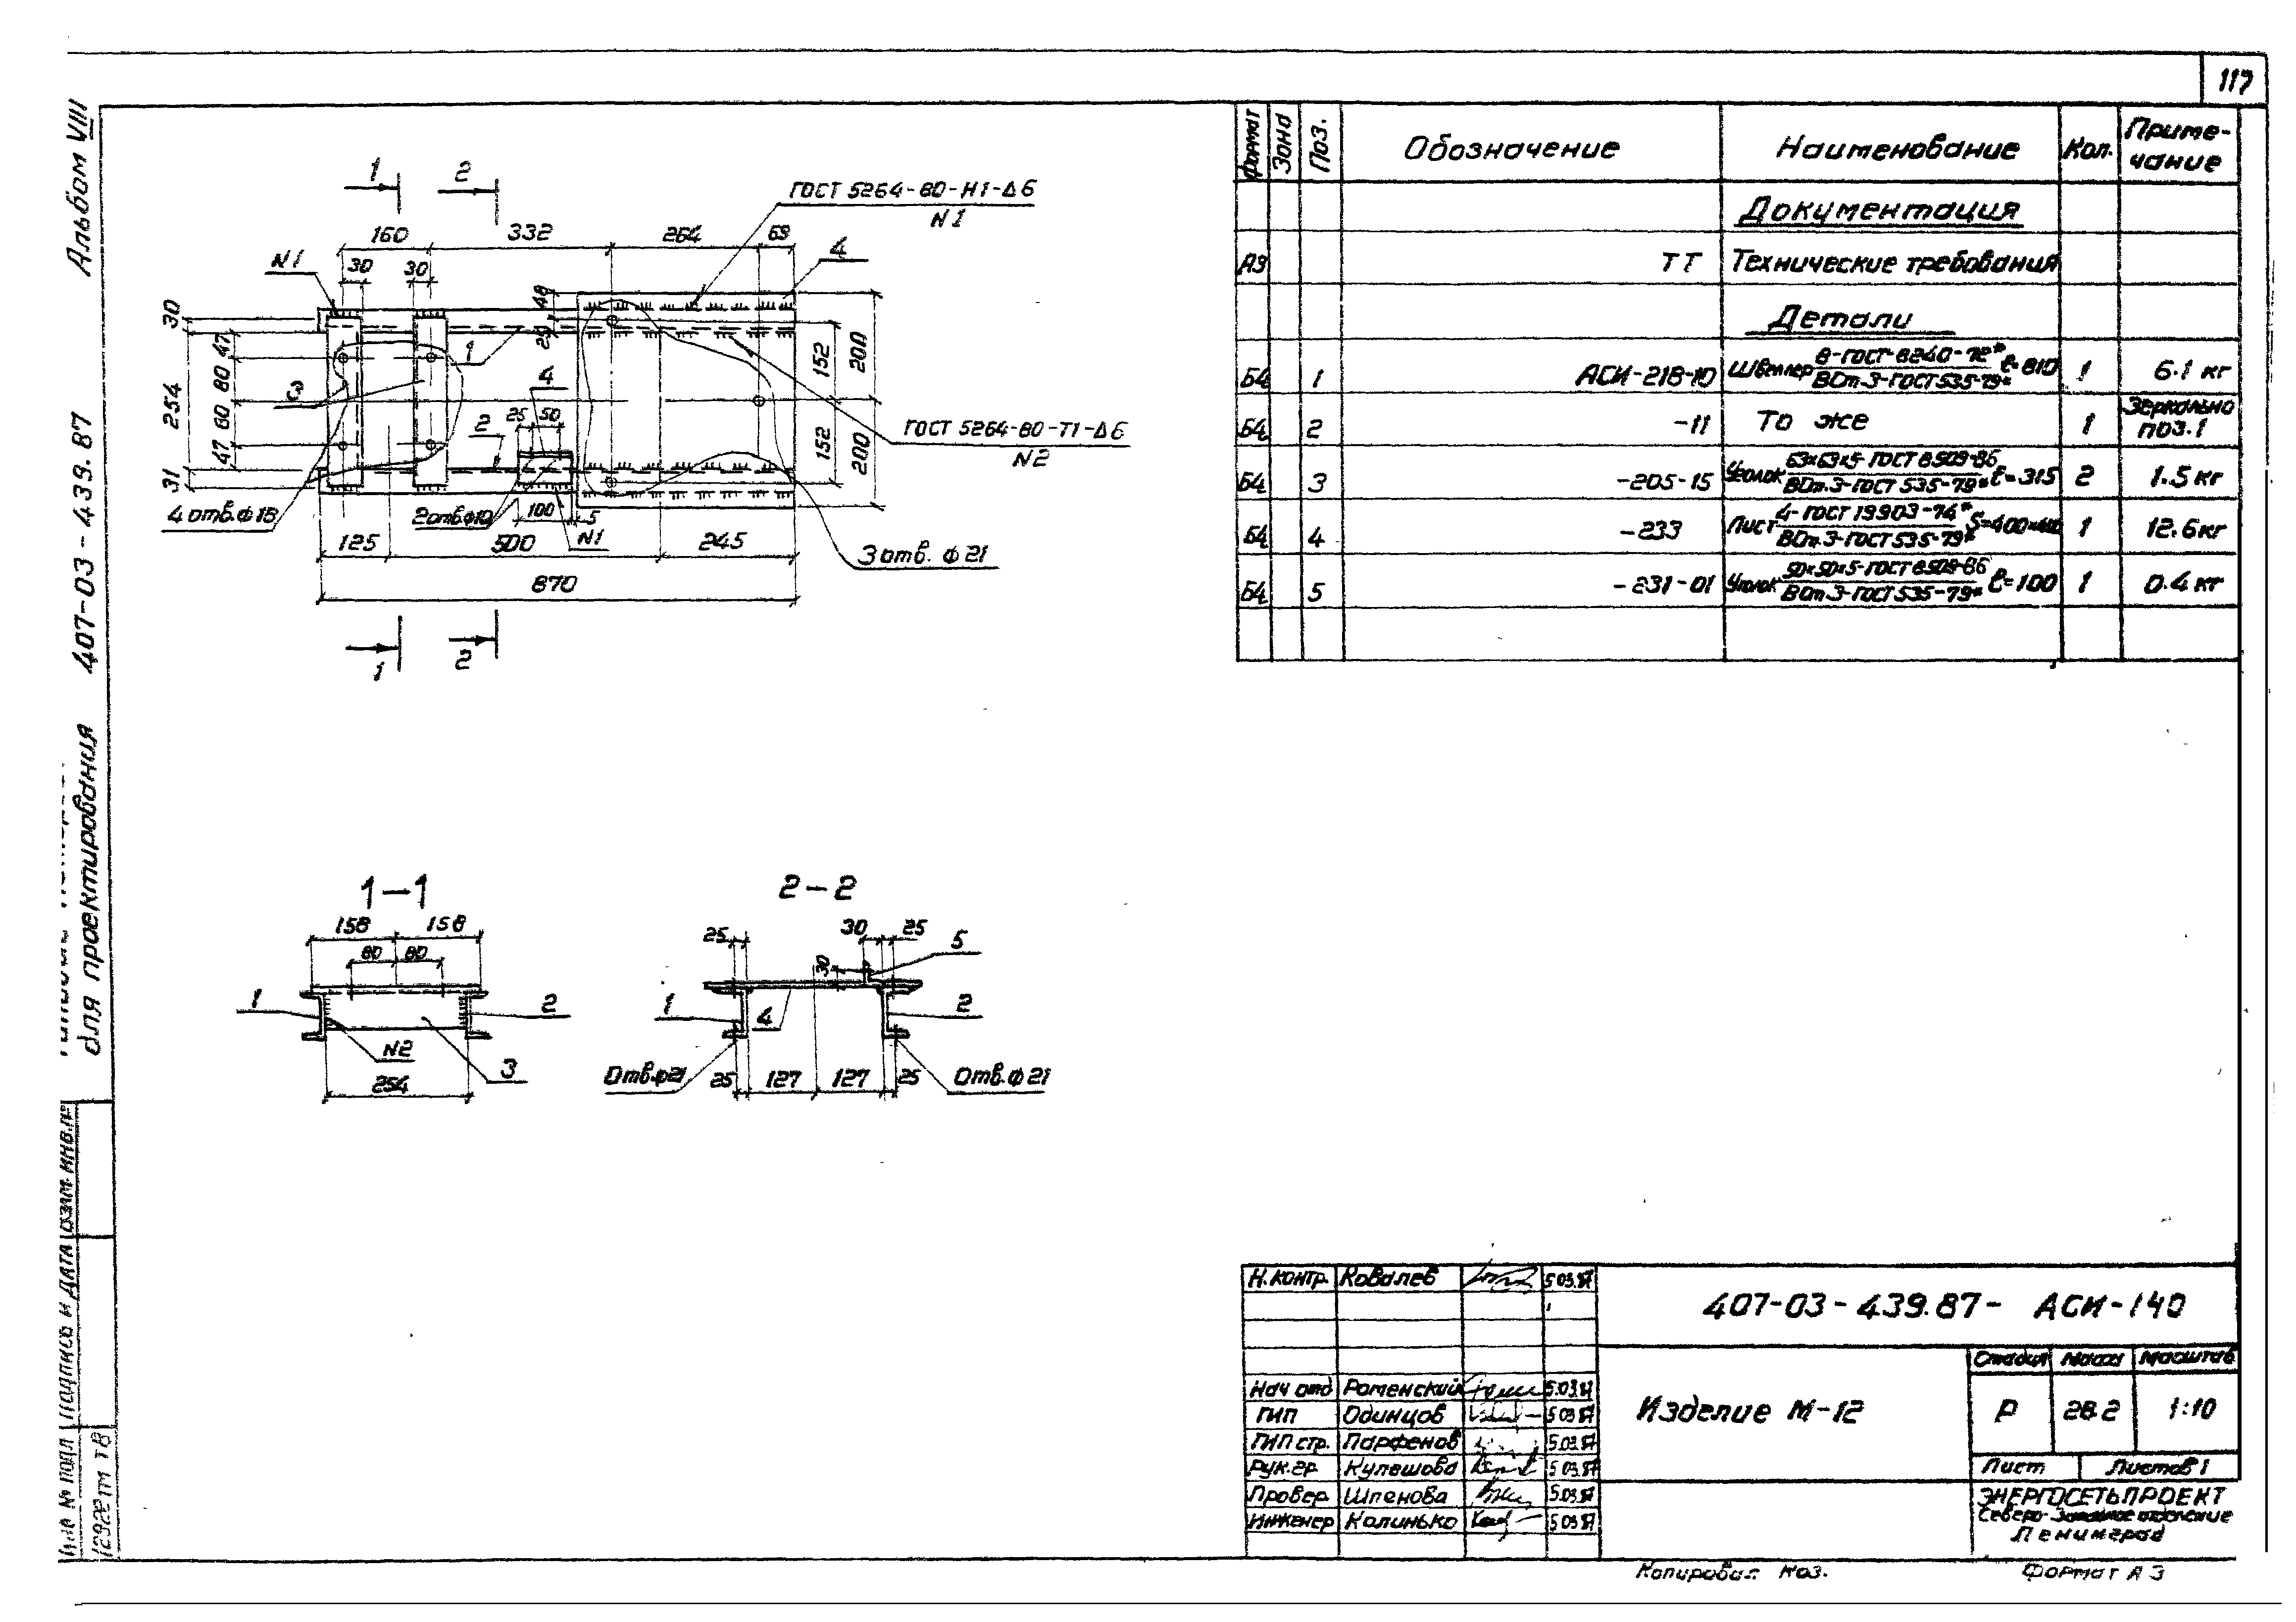 117
Альбом VIII
407-03-439.87
для проектирования
Формат
Зона
Поз.
Обозначение
Наименование
Кол.
Приме-
чание
Документация
А3
ТТ
Технические требования
Детали
Б4
1
АСИ-218-10
Швеллер 8-ГОСТ 8240-72* / ВСт.3-ГОСТ 535-79* ℓ=810
1
6.1 кг
Б4
2
-11
То же
1
Зеркально
поз.1
Б4
3
-205-15
Уголок 63×63×5-ГОСТ 8509-86 / ВСт.3-ГОСТ 535-79* ℓ=315
2
1.5 кг
Б4
4
-233
Лист 4-ГОСТ 19903-74* / ВСт.3-ГОСТ 535-79* S=400×400
1
12.6 кг
Б4
5
-231-01
Уголок 50×50×5-ГОСТ 8509-86 / ВСт.3-ГОСТ 535-79* ℓ=100
1
0.4 кг
1
2
ГОСТ 5264-80-Н1-Δ6
N1
160
332
264
69
4
N1
30
30
48
25
30
47
80
254
80
47
31
3
1
4
25
50
2
152
200
152
200
ГОСТ 5264-80-Т1-Δ6
N2
4 отв. ф18
2 отв. ф10
100
5
N1
125
500
245
3 отв. ф 21
870
1
2
1-1
158
158
80
80
1
2
N2
3
254
2-2
25
30
25
5
30
1
4
2
Отв. ф21
25
127
127
25
Отв. ф 21
Н.контр.
Ковалев
5.03.87
407-03-439.87- АСИ-140
Изделие М-12
Стадия
Масса
Масштаб
Р
28.2
1:10
Лист
Листов 1
Нач отд
Роменский
5.03.87
ГИП
Одинцов
5.03.87
ГИП стр.
Парфенов
5.03.87
Рук.гр
Кулешова
5.03.87
Провер.
Шленова
5.03.87
Инженер
Калинько
5.03.87
ЭНЕРГОСЕТЬПРОЕКТ
Северо-Западное отделение
Ленинград
Копировал: Коз.
Формат А3
ВЗАМ. ИНВ.№
ПОДПИСЬ И ДАТА
ИНВ № ПОДЛ
12922тм т8